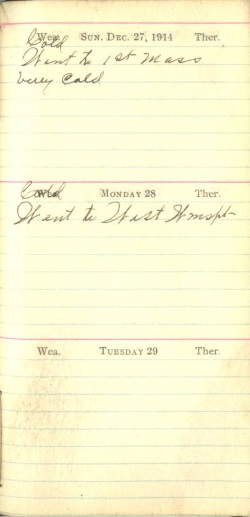 Cold
Wea. SUN. DEC. 27, 1914 Ther.
Went to 1st Mass
verey Cold
Cold
Wea. MONDAY 28 Ther.
Went to West Wmspt
Wea. TUESDAY 29 Ther.